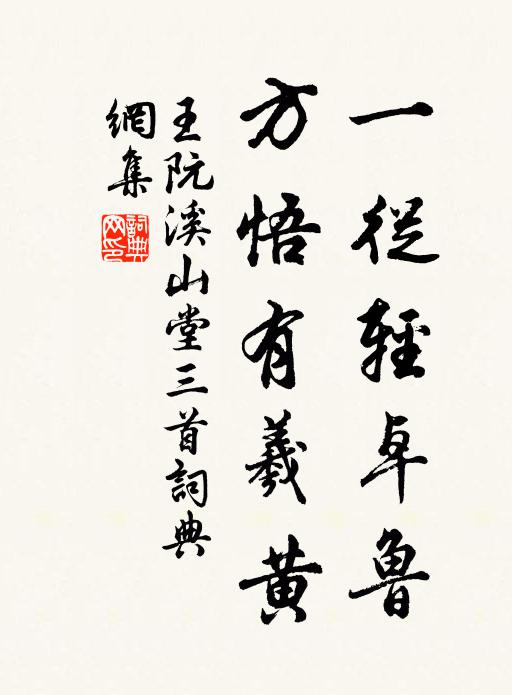 一從輕卓魯
方悟有羲黃
王阮溪山堂三首詞典
網集
詞典網印